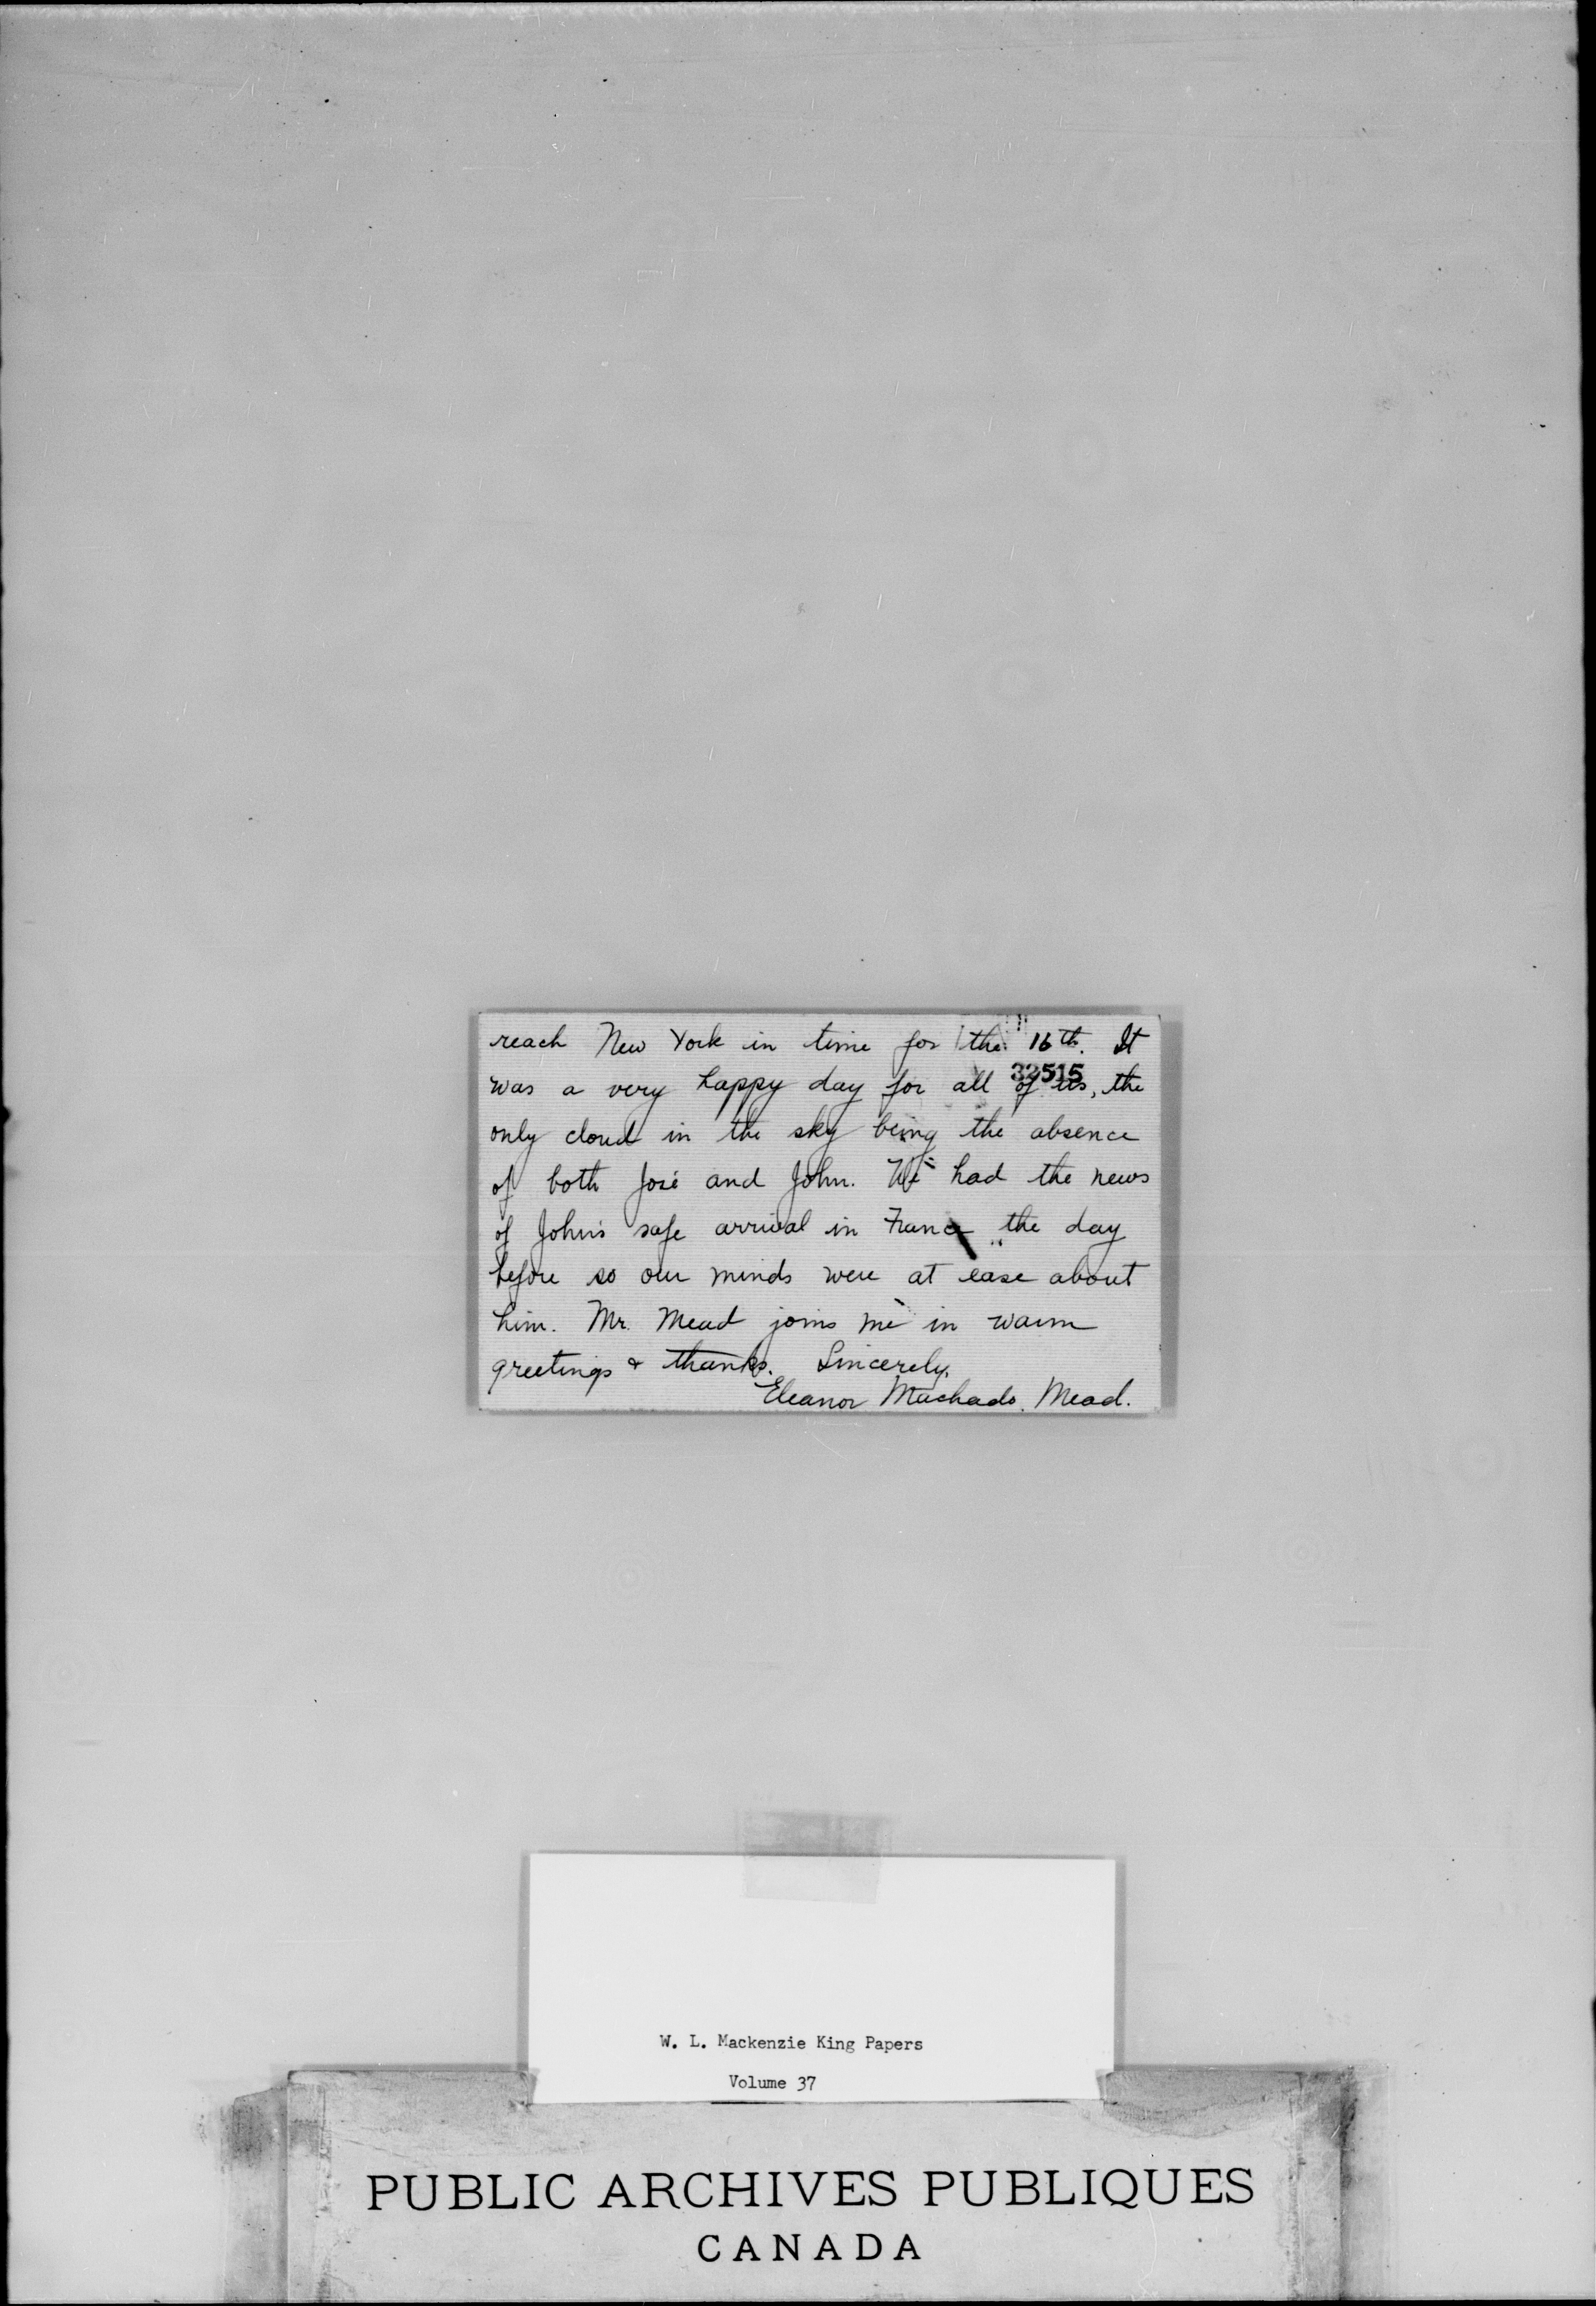 reach New York in time for the 16th. It
32515
was a very happy day for all of us, the
only cloud in the sky being the absence
of both José and John. We had the news
of John's safe arrival in France the day
before so our minds were at ease about
him. Mr. Mead joins me in warm
greetings & thanks. Sincerely,
Eleanor Machado Mead.
W. L. Mackenzie King Papers
Volume 37
PUBLIC ARCHIVES PUBLIQUES
CANADA